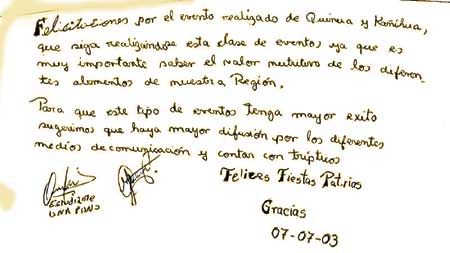 Felicitaciones por el evento realizado de Quinua y Kañihua,
que siga realizándose esta clase de eventos ya que es
muy importante saber el valor nutritivo de los diferen-
tes alementos de nuestra Región.
Para que este tipo de eventos tenga mayor exito
sugerimos que haya mayor difusión por los diferentes
medios de comunicación y contar con trípticos
Felices Fiestas Patrias
ESTUDIANTE
UNA PUNO
Gracias
07-07-03